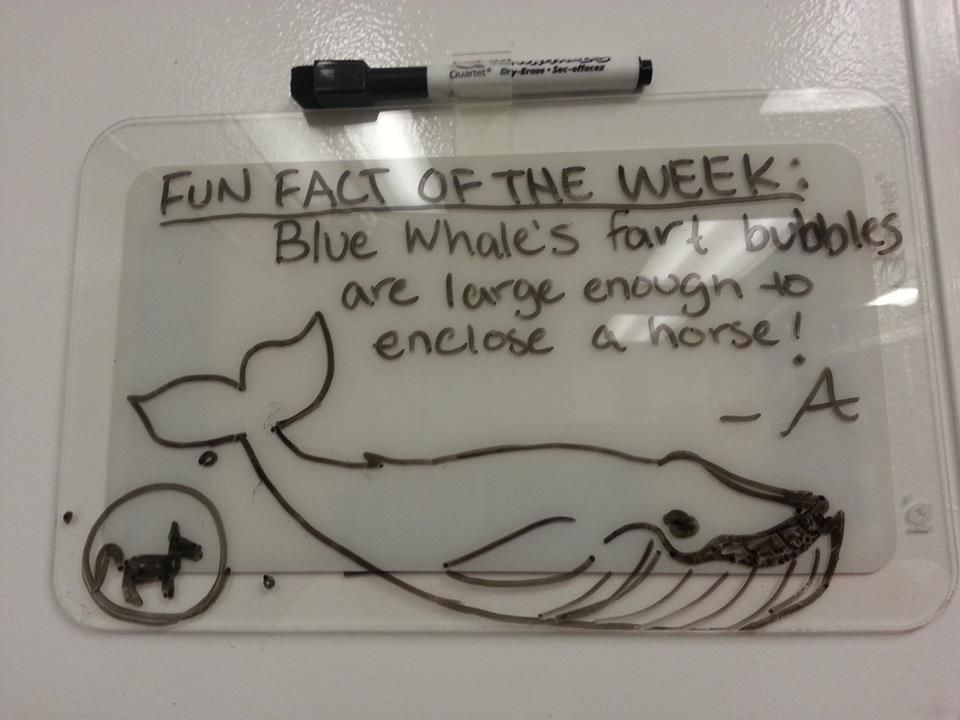 Quartet® Dry-Erase • Sec-effacez
FUN FACT OF THE WEEK:
Blue Whale's fart bubbles
are large enough to
enclose a horse!
- A